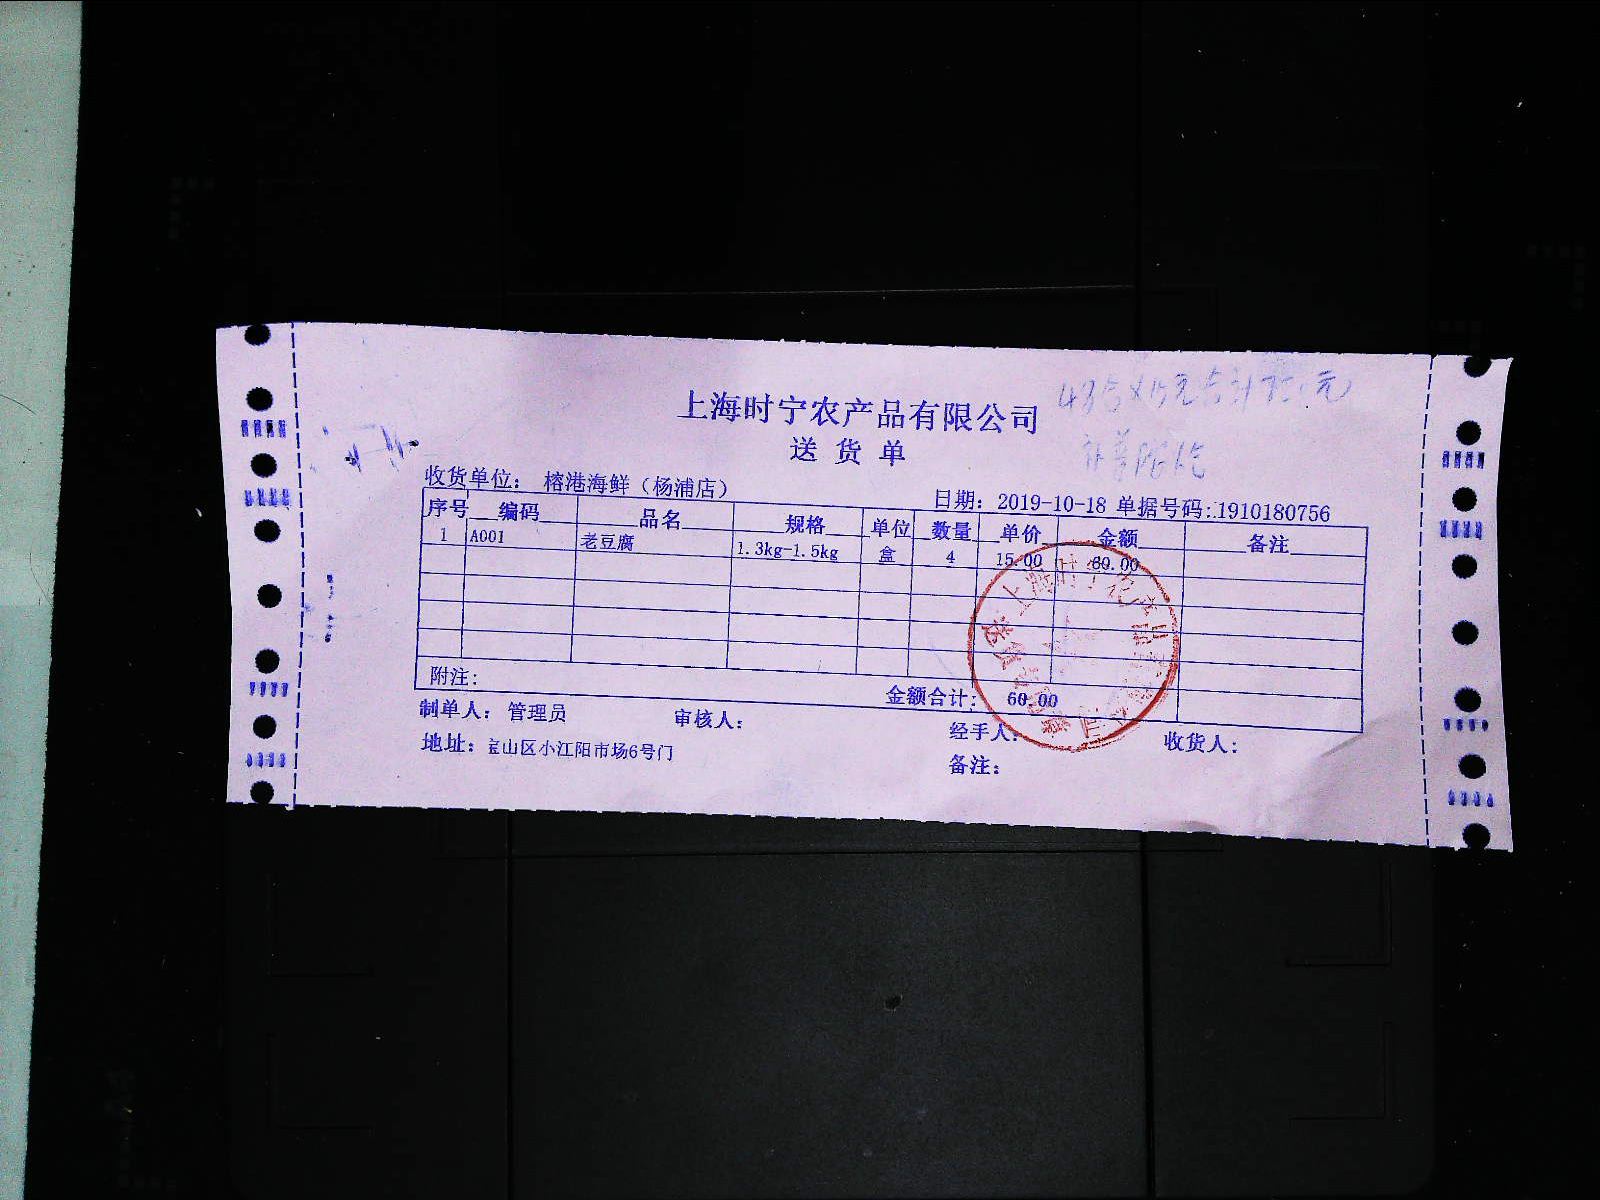 上海时宁农产品有限公司
送货单
收货单位： 榕港海鲜（杨浦店）
日期：2019-10-18 单据号码:.1910180756
序号 编码 品名 规格 单位 数量 单价 金额 备注
1 A001 老豆腐 1.3kg-1.5kg 盒 4 15.00 60.00
附注: 金额合计: 60.00
制单人：管理员 审核人： 经手人： 收货人：
地址：宝山区小江阳市场6号门 备注：